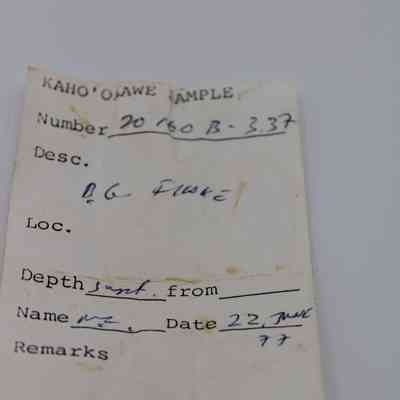 KAHO'OLAWE SAMPLE
Number 20 160 B-3.37
Desc.
B.G FLAKE
Loc.
Depth surf. from
Name Date 22, JUNE
77
Remarks